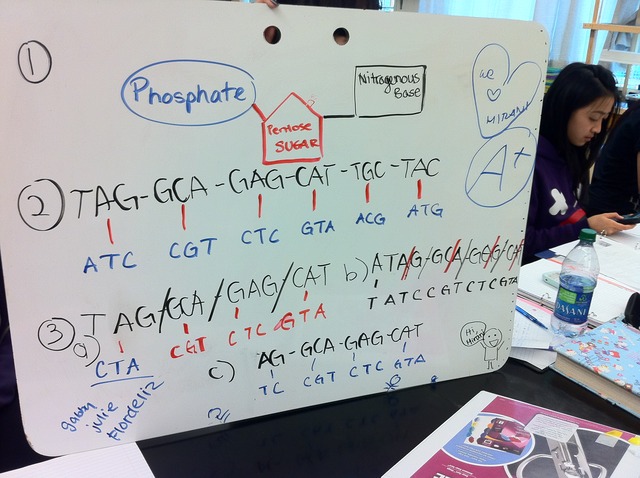 1
Phosphate
Pentose
SUGAR
Nitrogenous
Base
we
♡
A+
2 TAG-GCA-GAG-CAT-TGC-TAC
ATC CGT CTC GTA ACG ATG
3 a) TAG/GCA/GAG/CAT
CTA CGT CTC GTA
b) ATAG/GCA/GEG/CAT
TATCCGTCTCGTA
c) AG-GCA-GAG-CAT
TC CGT CTC GTA
gabby
julie
Flordeliz
Hi
DASANI